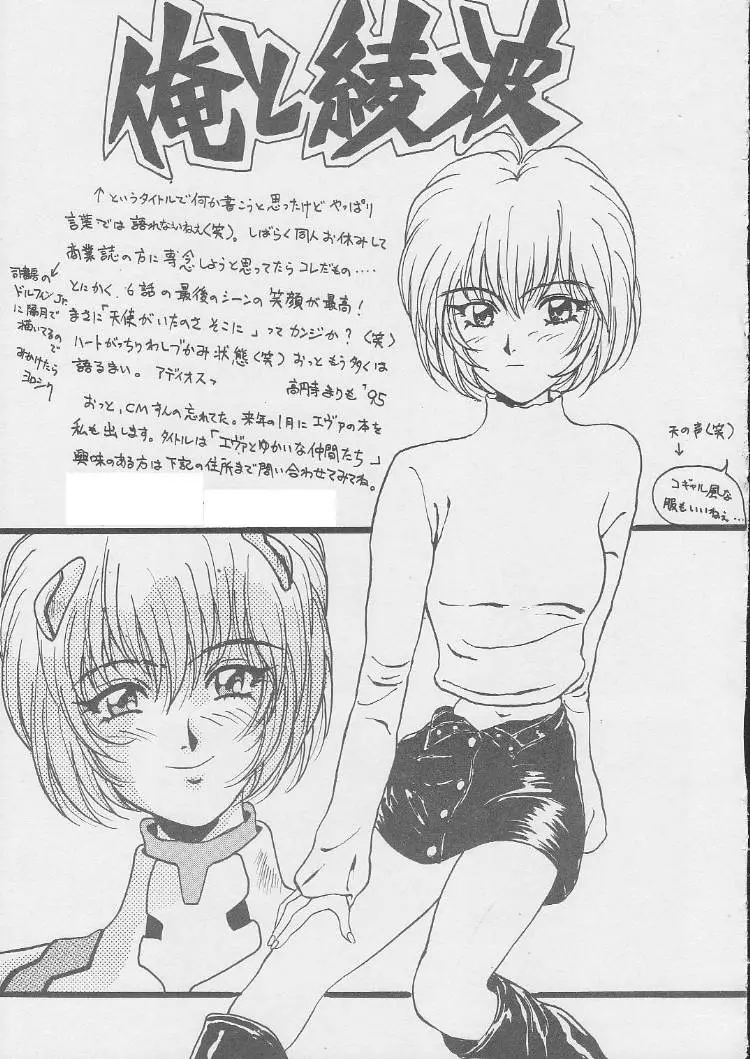 俺と綾波
↑というタイトルで何か書こうと思ったけど やっぱり
言葉では語れないねえ(笑)。しばらく同人お休みして
商業誌の方に専念しようと思ってたらコレだもの‥‥
とにかく、6話の最後のシーンの笑顔が最高!
まさに「天使がいたのさ そこに」って カンジか?(笑)
ハートがっちりわしづかみ状態(笑) おっと もう多くは
語るまい。アディオスっ
高円寺まりも '95
司書房の
ドルフィンJr.
に隔月で
描いてるの
で
みかけたら
ヨロシク
おっと、CMすんの忘れてた。来年の1月にエヴァの本を
私も出します。タイトルは「エヴァとゆかいな仲間たち」
興味のある方は下記の住所まで問い合わせてみてね。
天の声(笑)
↓
コギャル風な
服もいいねぇ…